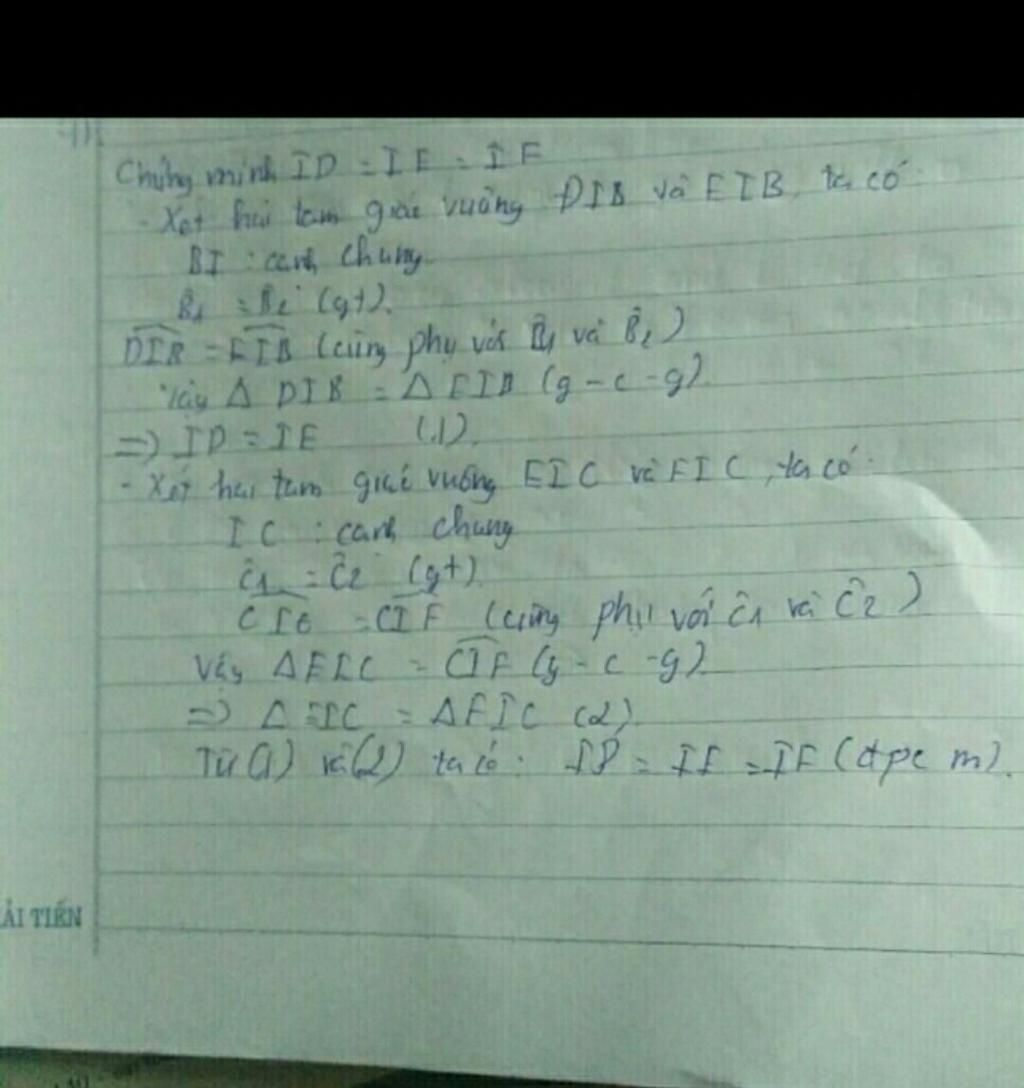 Chứng minh ID = IE = IF
- Xét hai tam giác vuông DIB và EIB, ta có
BI : cạnh chung
B̂1 = B̂2 (gt).
DIB = EIB (cùng phụ với B̂1 và B̂2)
Vậy Δ DIB = Δ EIB (g - c - g).
=> ID = IE (1).
- Xét hai tam giác vuông EIC và FIC, ta có
IC : cạnh chung
Ĉ1 = Ĉ2 (gt)
CIE = CIF (cùng phụ với Ĉ1 và Ĉ2)
Vậy ΔEIC = CIF (g - c - g).
=> Δ EIC = ΔFIC (2)
Từ (1) và (2) ta có: ID = IE = IF (đpc m).
ẢI TIẾN